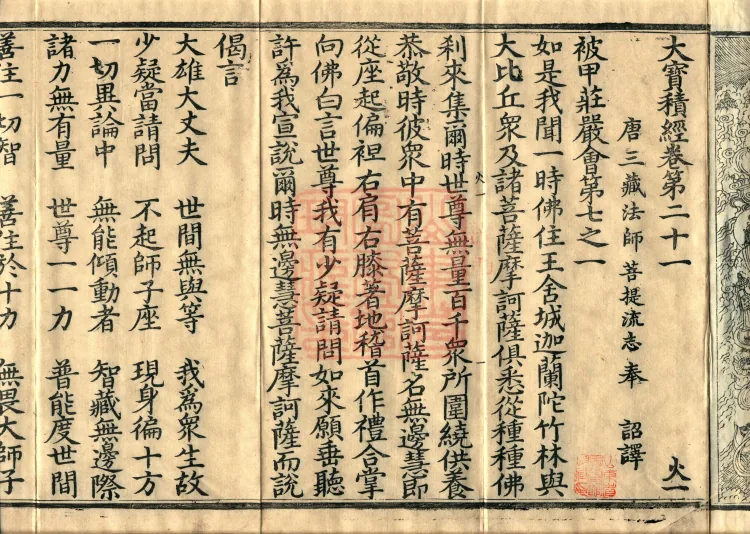 大寶積經卷第二十一 火一
唐三藏法師菩提流志奉 詔譯
被甲莊嚴會第七之一
如是我聞一時佛住王舍城迦蘭陀竹林與
大比丘眾及諸菩薩摩訶薩俱悉從種種佛
剎來集爾時世尊無量百千眾所圍繞供養
火一
恭敬時彼眾中有菩薩摩訶薩名無邊慧即
從座起偏袒右肩右膝著地稽首作禮合掌
向佛白言世尊我有少疑請問如來願垂聽
許為我宣說爾時無邊慧菩薩摩訶薩而說
偈言
大雄大丈夫 世間無與等 我為眾生故
少疑當請問 不起師子座 現身徧十方
一切異論中 無能傾動者 智藏無邊際
諸力無有量 世尊一一力 普能度世間
善住一切智 善住於十力 無畏大師子